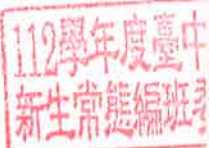 112學年度臺中
新生常態編班